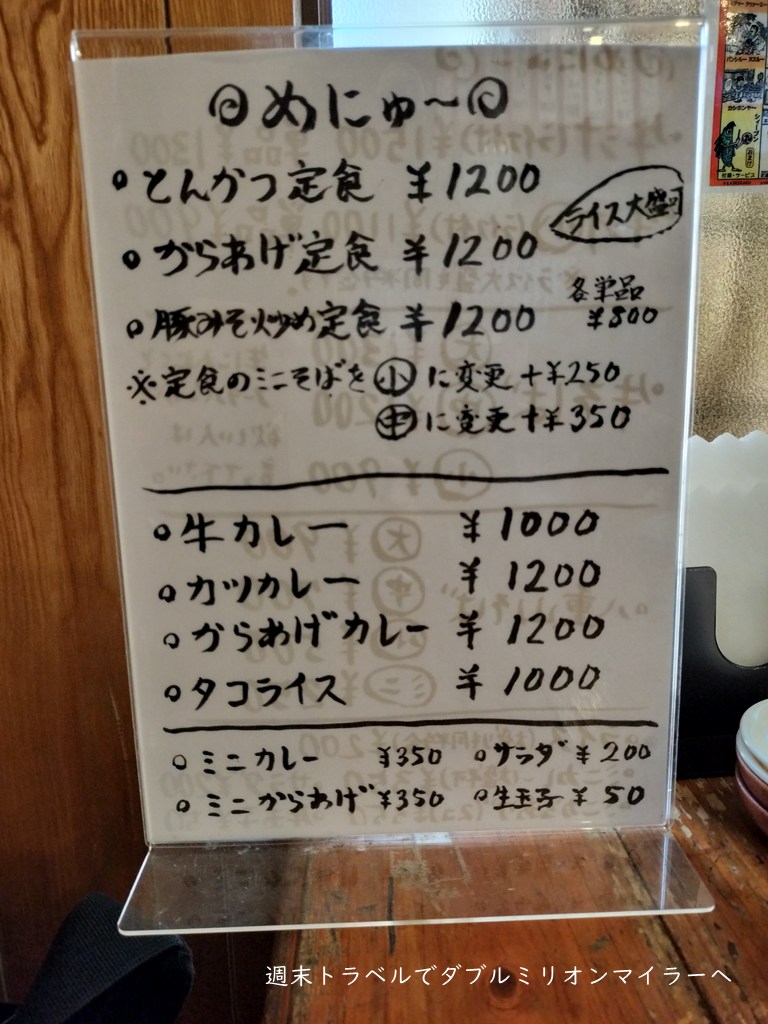 めにゅ〜
とんかつ定食 ¥1200
ライス大盛可
からあげ定食 ¥1200
各単品
¥800
豚みそ炒め定食 ¥1200
※定食のミニそばを小に変更+¥250
中に変更+¥350
牛カレー ¥1000
カツカレー ¥1200
からあげカレー ¥1200
タコライス ¥1000
ミニカレー ¥350 サラダ ¥200
ミニからあげ ¥350 生玉子 ¥50
週末トラベルでダブルミリオンマイラーへ